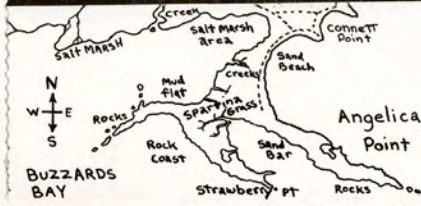 creek
Salt Marsh
area
Connett
Point
Salt MARSH
Sand
Beach
creeks
Mud
flat
N
W E
S
Rocks
Spartina
Grass
Angelica
Point
Rock
Coast
Sand
Bar
BUZZARDS
BAY
Strawberry PT
Rocks